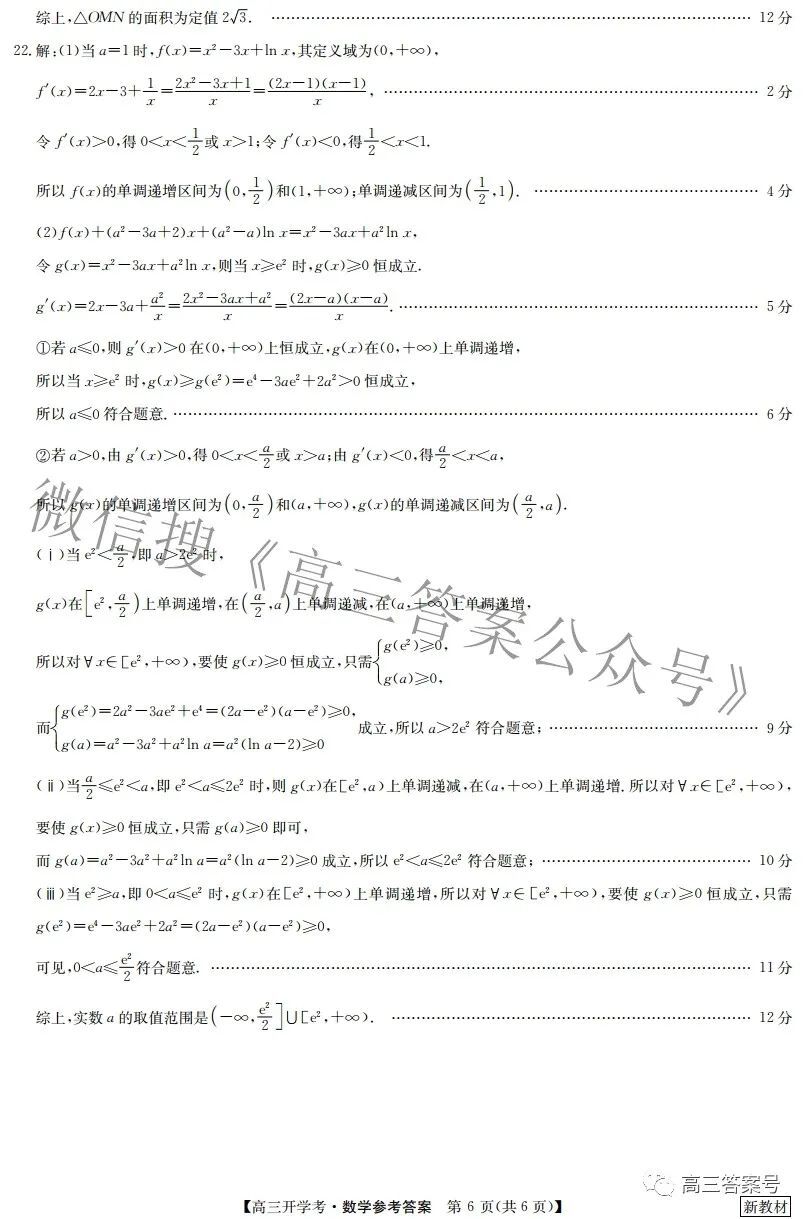 综上,△OMN 的面积为定值 2√3. ………… 12 分
22. 解:(1)当 a=1 时,f(x)=x²-3x+ln x,其定义域为(0,+∞),
f′(x)=2x-3+1/x=(2x²-3x+1)/x=(2x-1)(x-1)/x, ………… 2 分
令 f′(x)>0,得 0<x<1/2 或 x>1;令 f′(x)<0,得 1/2<x<1.
所以 f(x)的单调递增区间为(0,1/2)和(1,+∞);单调递减区间为(1/2,1). ………… 4 分
(2)f(x)+(a²-3a+2)x+(a²-a)ln x=x²-3ax+a²ln x,
令 g(x)=x²-3ax+a²ln x,则当 x≥e² 时,g(x)≥0 恒成立.
g′(x)=2x-3a+a²/x=(2x²-3ax+a²)/x=(2x-a)(x-a)/x. ………… 5 分
①若 a≤0,则 g′(x)>0 在(0,+∞)上恒成立,g(x)在(0,+∞)上单调递增,
所以当 x≥e² 时,g(x)≥g(e²)=e⁴-3ae²+2a²>0 恒成立,
所以 a≤0 符合题意. ………… 6 分
②若 a>0,由 g′(x)>0,得 0<x<a/2 或 x>a;由 g′(x)<0,得 a/2<x<a,
所以 g(x)的单调递增区间为(0,a/2)和(a,+∞),g(x)的单调递减区间为(a/2,a).
(ⅰ)当 e²<a/2,即 a>2e² 时,
g(x)在[e²,a/2)上单调递增,在(a/2,a)上单调递减,在(a,+∞)上单调递增,
所以对∀x∈[e²,+∞),要使 g(x)≥0 恒成立,只需{g(e²)≥0, g(a)≥0,
而{g(e²)=2a²-3ae²+e⁴=(2a-e²)(a-e²)≥0, g(a)=a²-3a²+a²ln a=a²(ln a-2)≥0 成立,所以 a>2e² 符合题意; ………… 9 分
(ⅱ)当 a/2≤e²<a,即 e²<a≤2e² 时,则 g(x)在[e²,a)上单调递减,在(a,+∞)上单调递增.所以对∀x∈[e²,+∞),
要使 g(x)≥0 恒成立,只需 g(a)≥0 即可,
而 g(a)=a²-3a²+a²ln a=a²(ln a-2)≥0 成立,所以 e²<a≤2e² 符合题意; ………… 10 分
(ⅲ)当 e²≥a,即 0<a≤e² 时,g(x)在[e²,+∞)上单调递增,所以对∀x∈[e²,+∞),要使 g(x)≥0 恒成立,只需
g(e²)=e⁴-3ae²+2a²=(2a-e²)(a-e²)≥0,
可见,0<a≤e²/2 符合题意. ………… 11 分
综上,实数 a 的取值范围是(-∞,e²/2]∪[e²,+∞). ………… 12 分
微信搜《高三答案公众号》
高三答案号
【高三开学考·数学参考答案 第 6 页(共 6 页)】
新教材